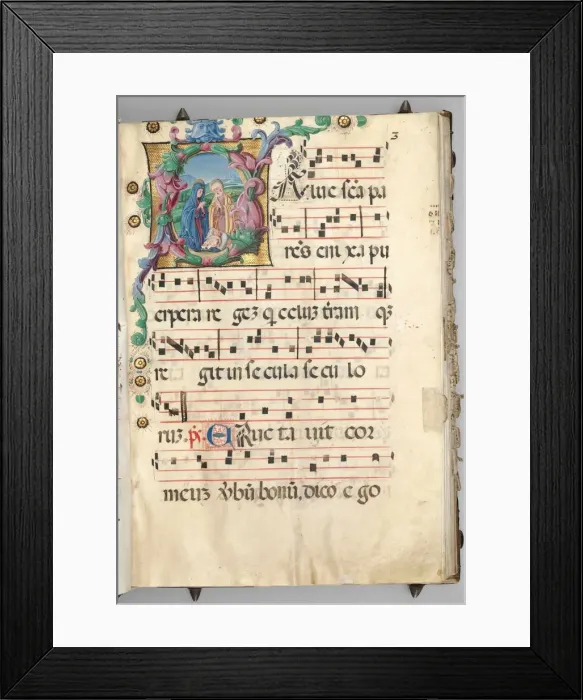 3
Alue scā pa
rēs eni xa pu
erpera re geʒ q̄ celuʒ trām qʒ
re git in se cula se cu lo
ruʒ. p̄s. E Ruc ta uit cor
meuʒ v̄bū bonū. dico e go